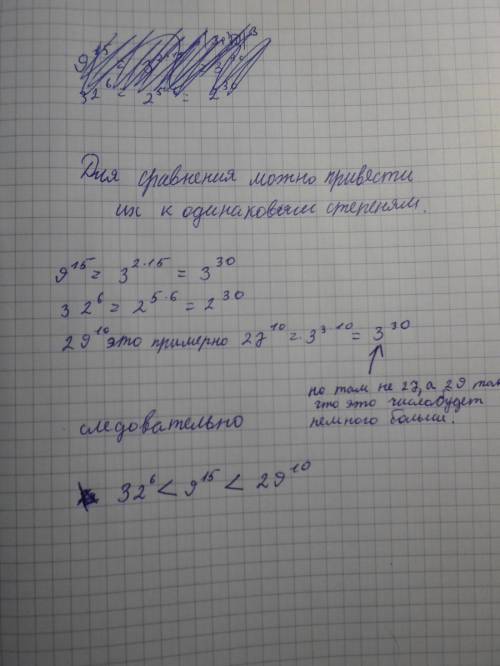 Для сравнения можно привести
их к одинаковым степеням.
9¹⁵ = 3²·¹⁵ = 3³⁰
32⁶ = 2⁵·⁶ = 2³⁰
29¹⁰ это примерно 27¹⁰ = 3³·¹⁰ = 3³⁰
но там не 27, а 29 так
что это число будет
немного больше.
следовательно
32⁶ < 9¹⁵ < 29¹⁰